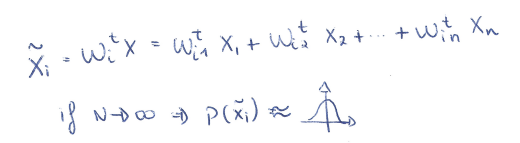 x̃ᵢ = wᵢᵗx = wᵢ₁ᵗ x₁ + wᵢ₂ᵗ x₂ + ⋯ + wᵢₙᵗ xₙ
if N→∞ ⇒ p(x̃ᵢ) ≈